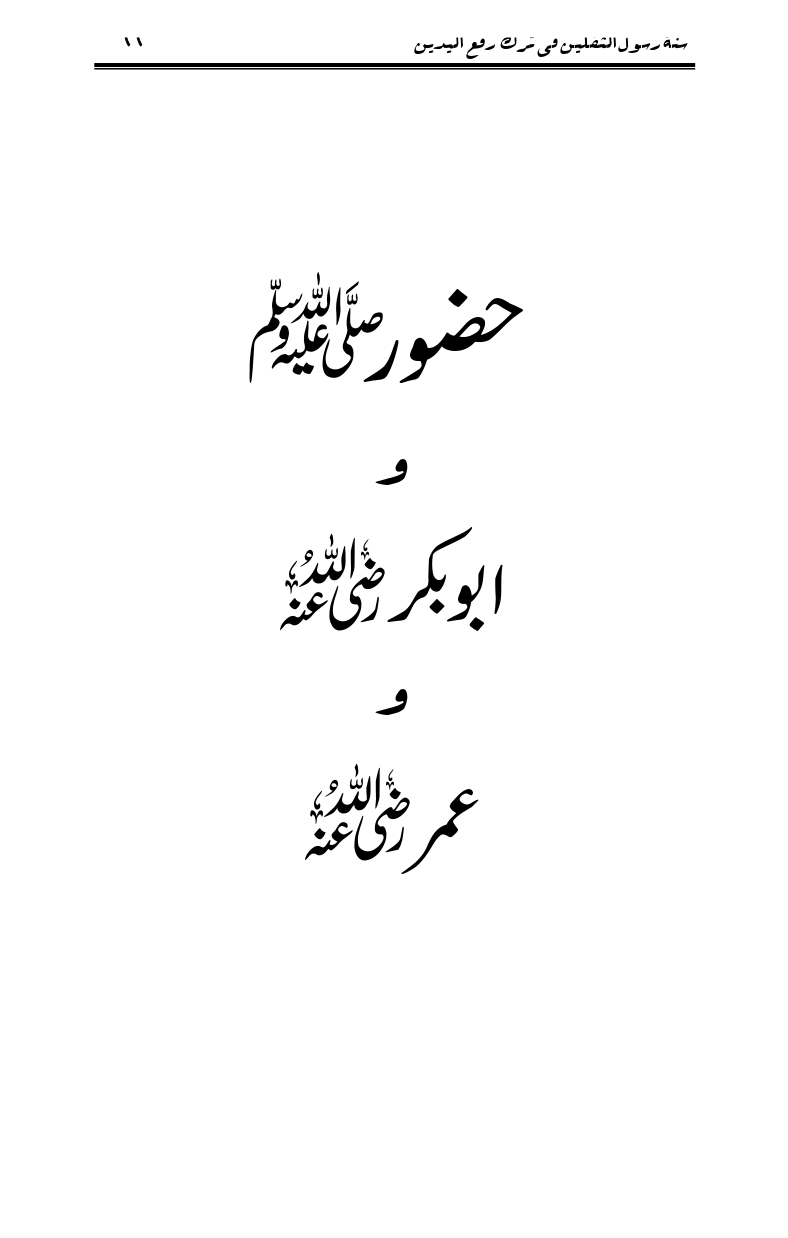 سنة رسول الثقلين فى ترك رفع اليدين ١١
حضور صلّی اللہ علیہ وسلّم
و
ابوبکر رضی اللہ عنہ
و
عمر رضی اللہ عنہ